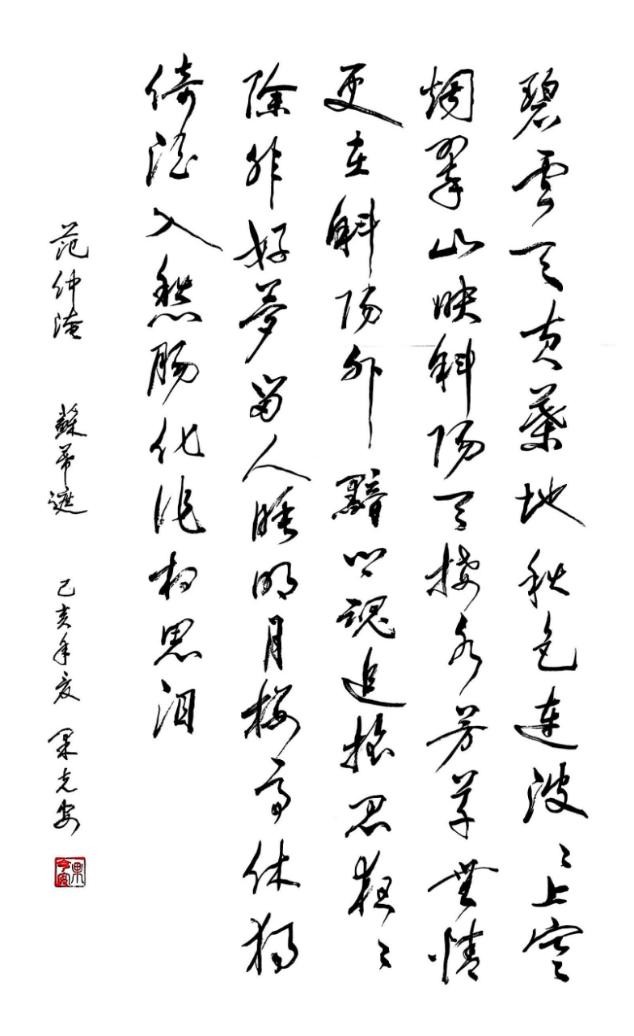 碧雲天黄葉地秋色連波々上寒
烟翠山映斜陽天接水芳草無情
更在斜陽外黯鄉魂追旅思夜々
除非好夢留人睡明月樓高休獨
倚酒入愁腸化作相思泪
范仲淹 蘇幕遮 己亥年夏 果克安